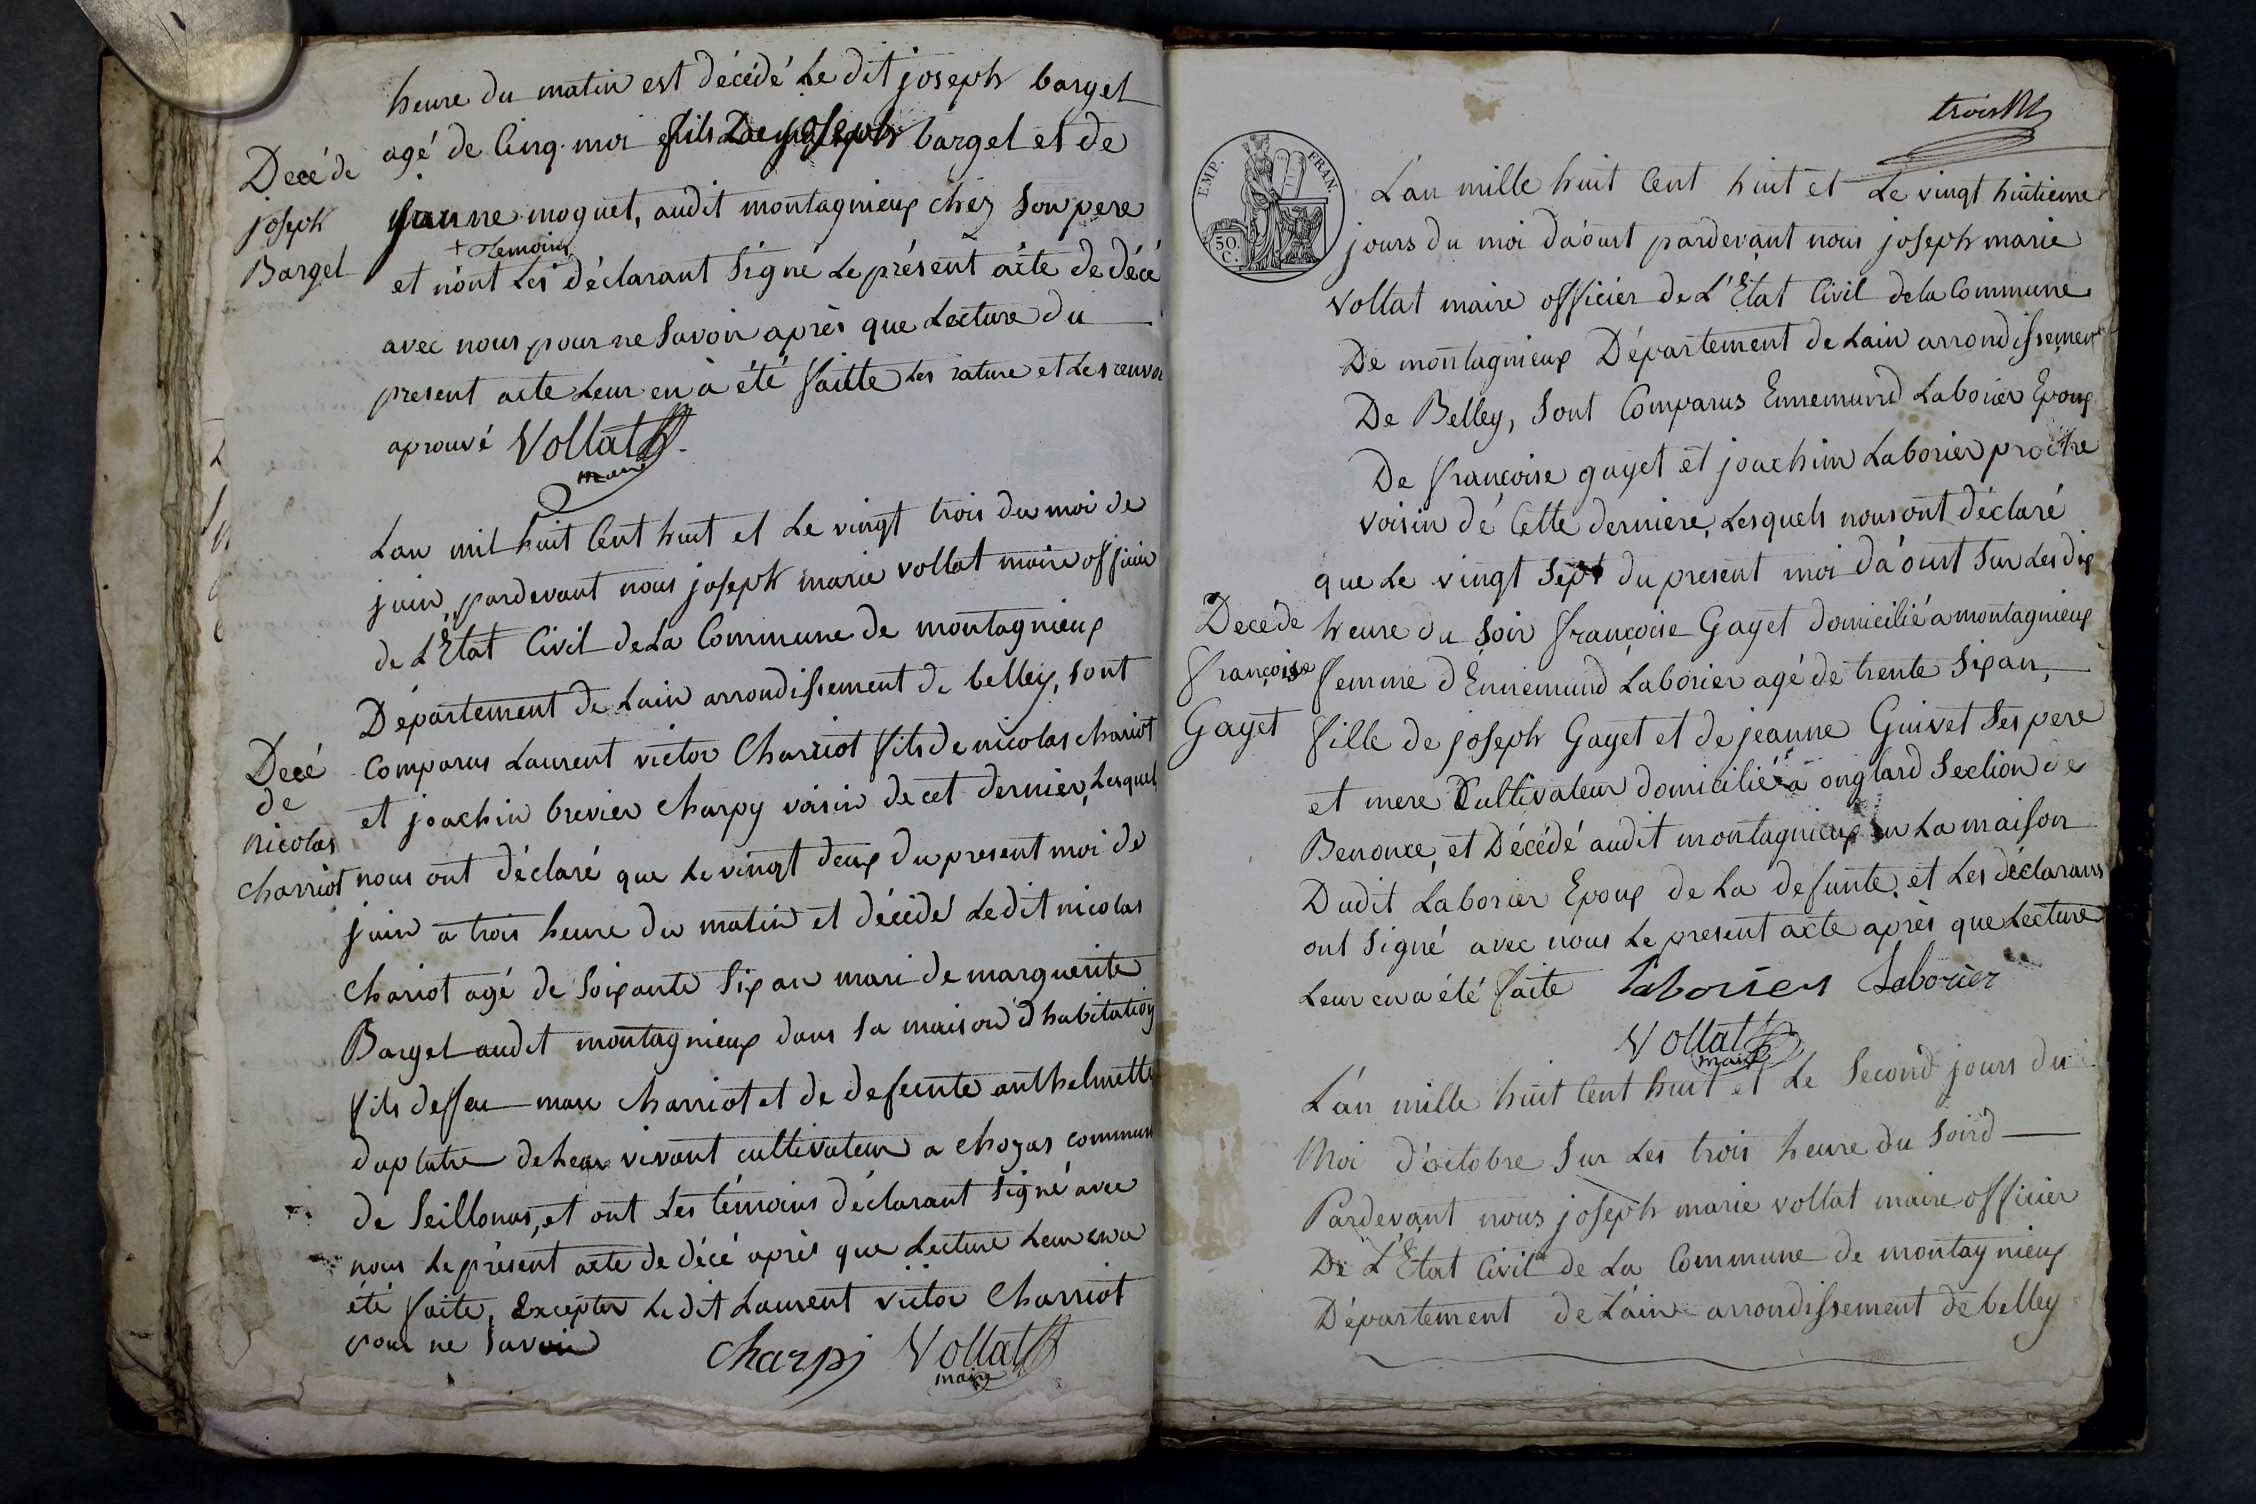 heure du matin est décédé le dit joseph bargel
agé de Cinq moi fils De joseph bargel et de
jeanne moquet, audit montagnieux chez Son pere
+ temoins
et n'ont les déclarant Signé le présent acte de décé
avec nous pour ne Savoir après que Lecture du
present acte Leur en à été faitte Les rature et Les renvoi
aprouvé Vollat
maire
Decé de
joseph
Bargel
Lan mil huit Cent huit et Le vingt trois du moi de
juin, pardevant nous joseph marie vollat maire officier
de L'Etat Civil de La Commune de montagnieux
Département de Lain arrondissement de belley, sont
Comparus Laurent victor Charriot fils de nicolas chariot
et joachin brevier charpy voisin de cet dernier, Lesquel
nous ont déclaré que Le vingt deux du present moi de
juin a trois heure du matin et décédé Ledit nicolas
Chariot agé de Soixante Six an mari de marguerite
Bargel audit montagnieux dans Sa maison d'habitation
fils deffeu marc charriot et de defunte anthelmette
de vivant cultivateur a chozas commune
de Seillonas, et ont Les témoins déclarant Signé avec
nous Le présent acte de décé après que Lecture Leur en a
été faite, Excepter Ledit Laurent victor Charriot
pour ne Savoir
charpy Vollat
maire
Decé
de
nicolas
charriot
trois
EMP. FRAN.
50. C.
L'an mille huit Cent huit et Le vingt huitieme
jours du moi d'aoust pardevant nous joseph marie
vollat maire officier de L'Etat Civil de la Commune
De montagnieux Département de Lain arrondissement
De Belley, Sont Comparus Ennemund Laborier Epoux
De françoise gayet et joachim Laborier proche
voisin de Cette derniere, Lesquels nous ont déclaré
que Le vingt Sept du present moi d'aoust Sur Les dix
heure du Soir françoise Gayet domicilié a montagnieux
femme d'Ennemund Laborier agé de trente Six an,
fille de joseph Gayet et de jeanne Guivet Ses pere
et mere Cultivateur domicilié à onglard Section de
Benonce, et Décédé audit montagnieux en La maison
Dudit Laborier Epoux de La defunte, et Les déclarans
ont Signé avec nous Le present acte après que Lecture
Leur en a été faite Laborier Laborier
Vollat
maire
Decé de
françoise
Gayet
L'an mille huit Cent huit et Le Second jours du
Moi d'octobre Sur Les trois heure du Soird
Pardevant nous joseph marie vollat maire officier
De L'Etat Civil de La Commune de montagnieux
Département de L'ain arrondissement de belley